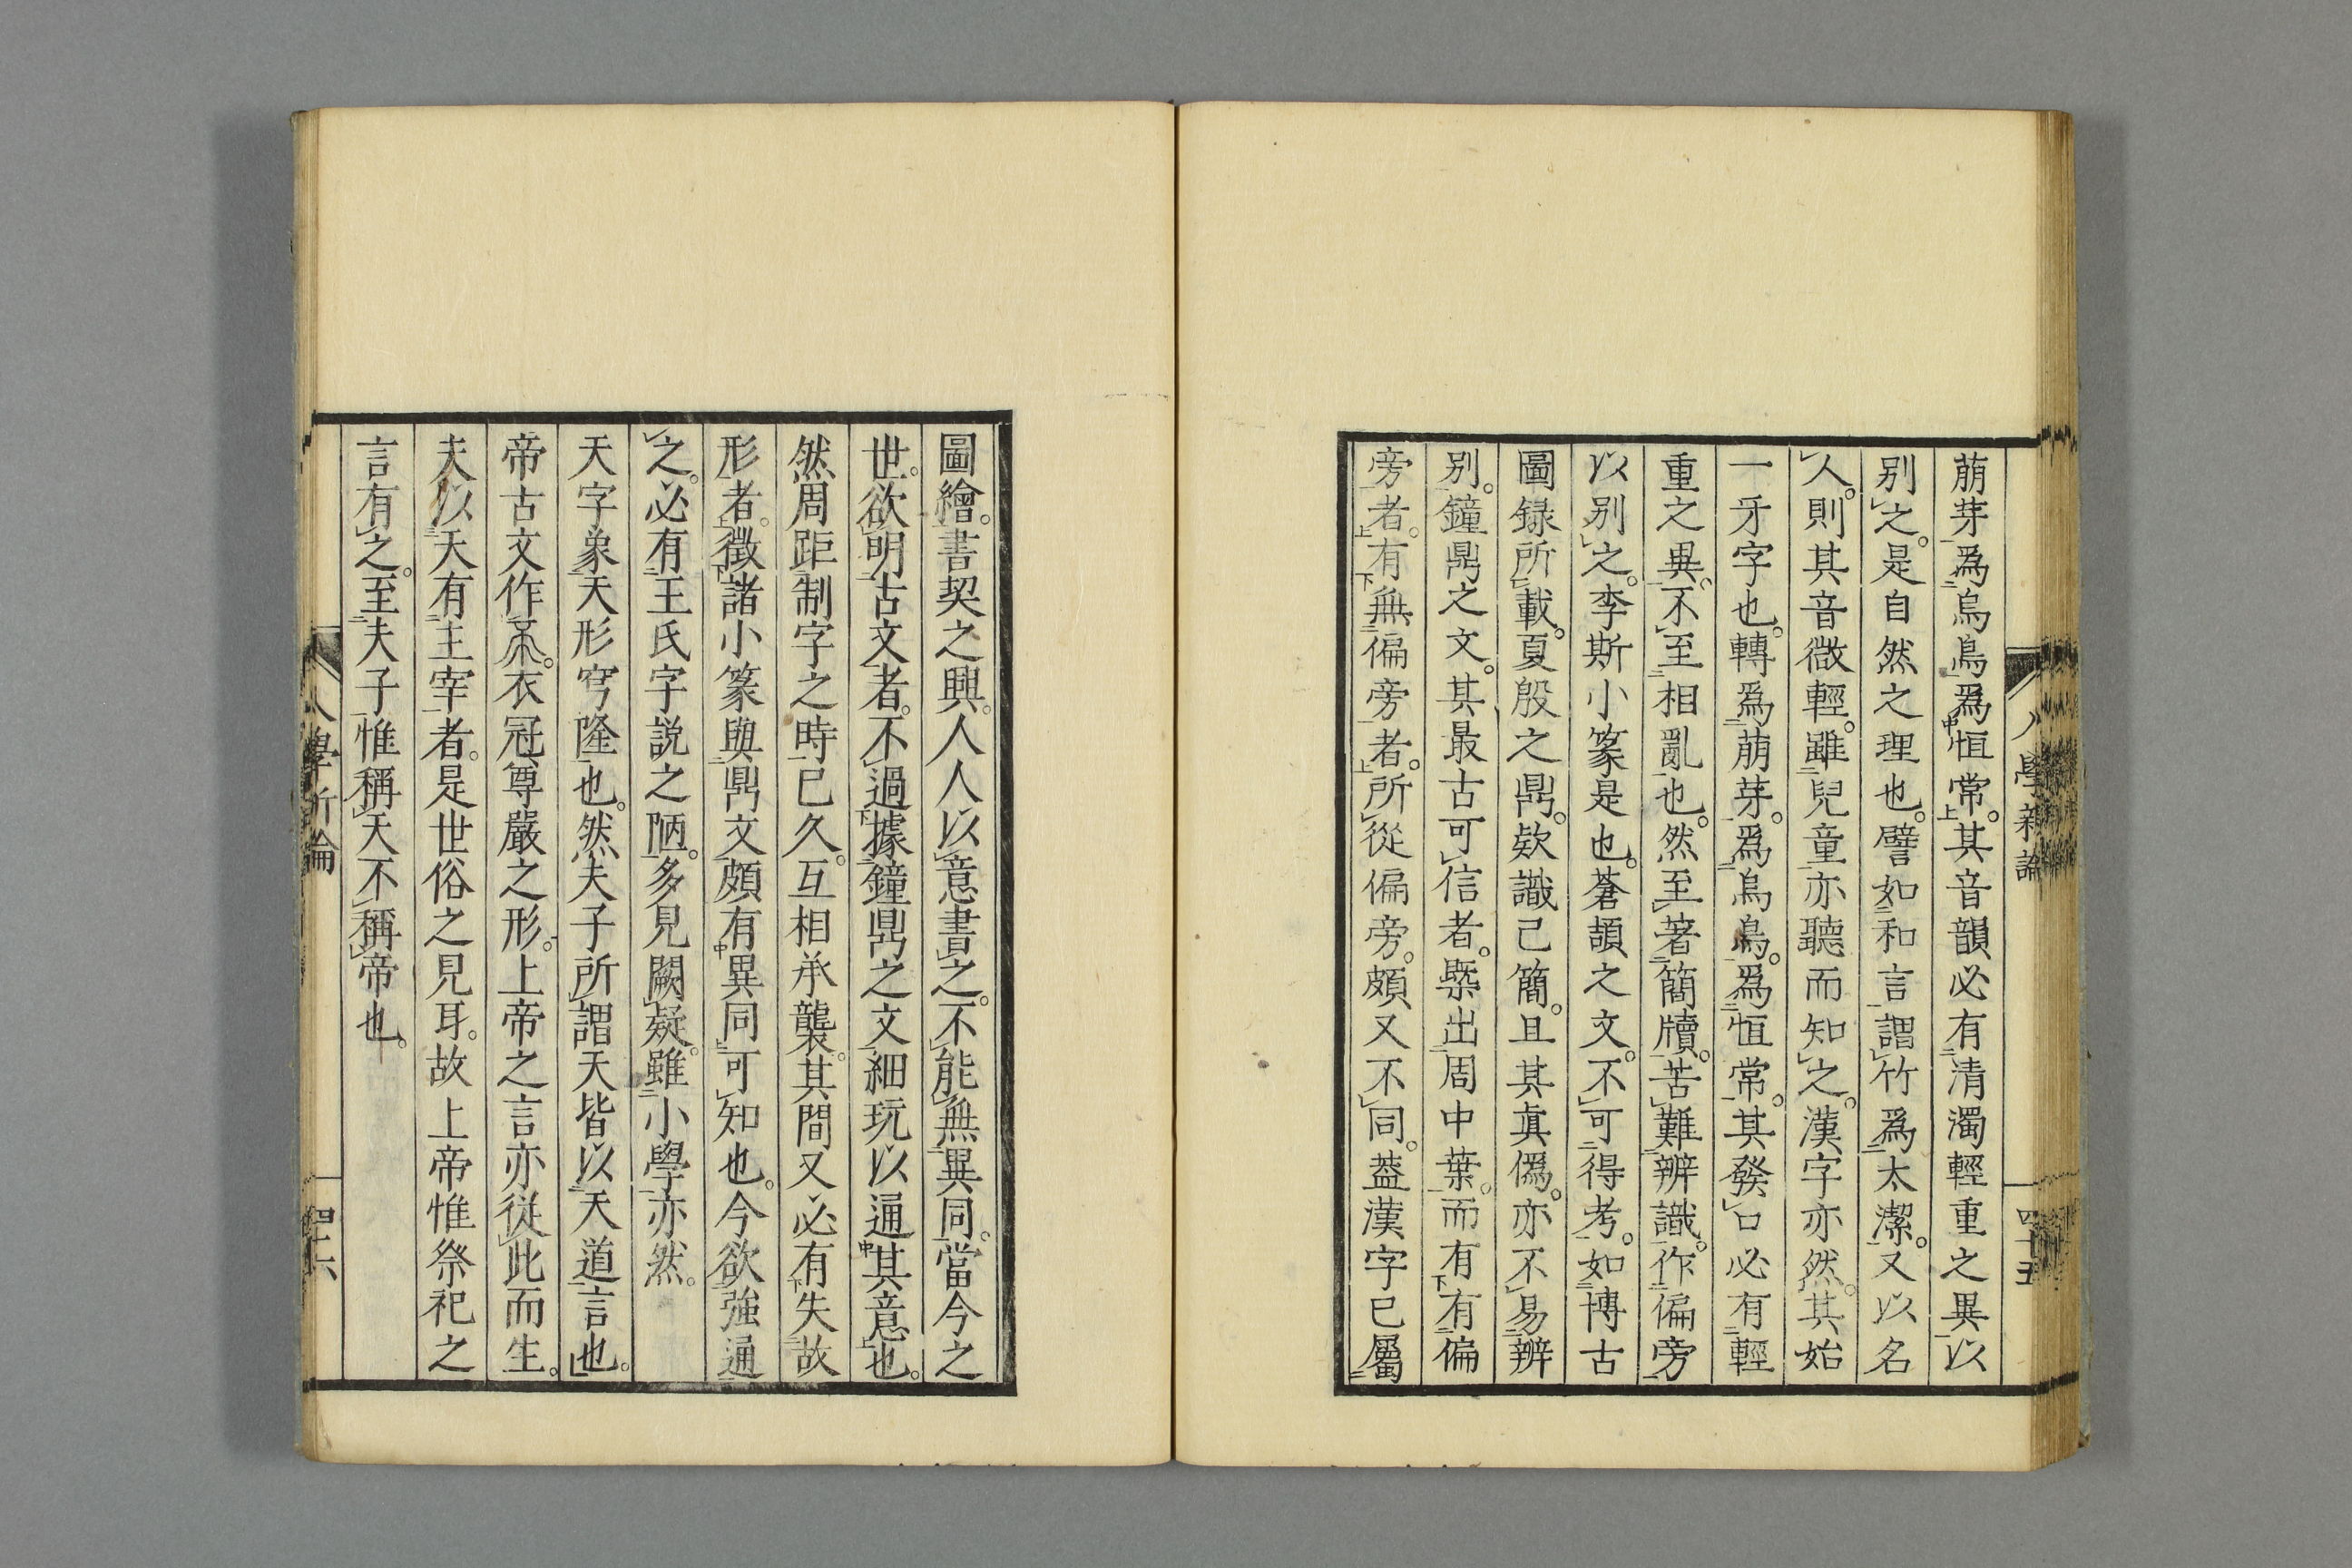 萠芽爲烏鳥爲恒常。其音韻必有清濁輕重之異以
别之。是自然之理也。譬如和言謂竹爲太潔。又以名
人。則其音微輕。雖兒童亦聽而知之。漢字亦然。其始
一牙字也。轉爲萠芽。爲烏鳥。爲恒常。其發口必有輕
重之異。不至相亂也。然至著簡牘。苦難辨識。作偏旁
以别之。李斯小篆是也。蒼頡之文。不可得考。如博古
圖録所載。夏殷之鼎。欵識已簡。且其眞僞。亦不易辨
别。鐘鼎之文。其最古可信者。槩出周中葉。而有有偏
旁者。有無偏旁者。所從偏旁。頗又不同。葢漢字已屬
八學新論
四十五
圖繪。書契之興。人人以意書之。不能無異同。當今之
世。欲明古文者。不過據鐘鼎之文細玩以通其意也。
然周距制字之時已久。互相承襲。其間又必有失故
形者。徴諸小篆與鼎文頗有異同可知也。今欲強通
之。必有王氏字説之陋。多見闕疑。雖小學亦然。
天字象天形穹隆也。然夫子所謂天皆以天道言也。
帝古文作。衣冠尊嚴之形。上帝之言亦從此而生。
夫以天有主宰者。是世俗之見耳。故上帝惟祭祀之
言有之。至夫子惟稱天不稱帝也。
八學新論
四十六